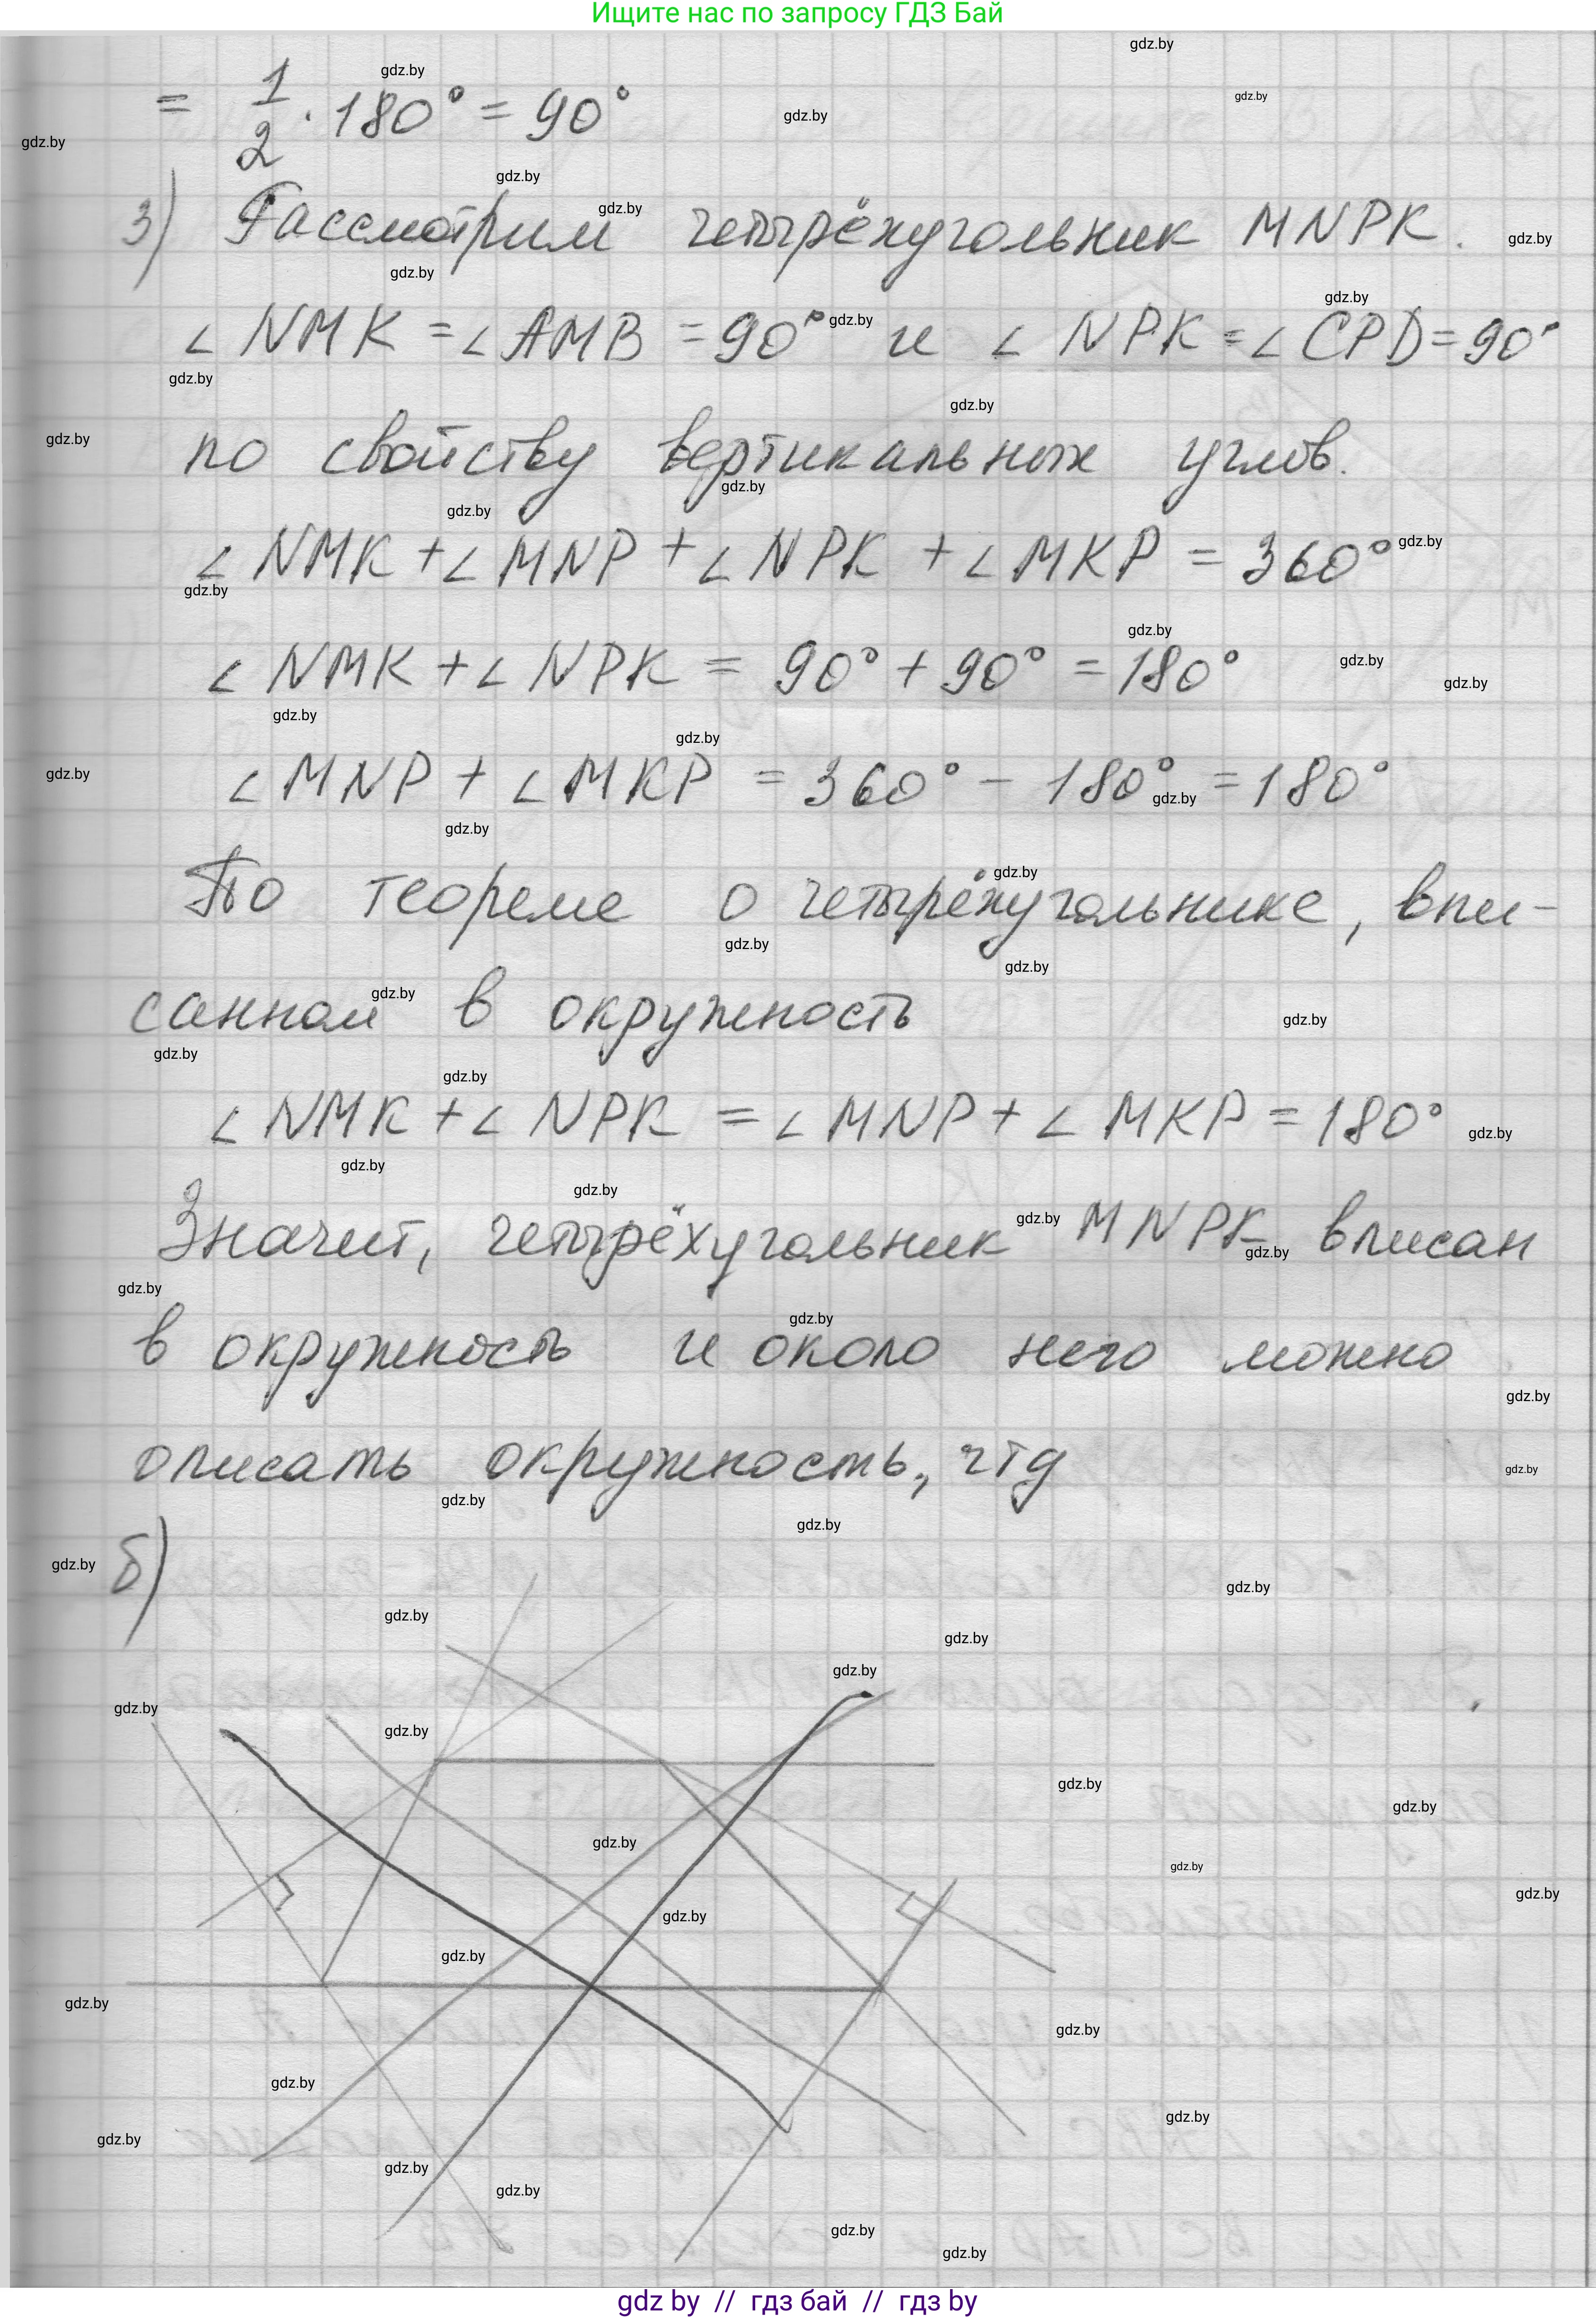 Ищите нас по запросу ГДЗ Бай
= 1/2 · 180° = 90°
3) Рассмотрим четырёхугольник MNPK.
∠ NMK = ∠ AMB = 90° и ∠ NPK = ∠ CPD = 90°
по свойству вертикальных углов.
∠ NMK + ∠ MNP + ∠ NPK + ∠ MKP = 360°
∠ NMK + ∠ NPK = 90° + 90° = 180°
∠ MNP + ∠ MKP = 360° - 180° = 180°
По теореме о четырёхугольнике, впи-
санном в окружность
∠ NMK + ∠ NPK = ∠ MNP + ∠ MKP = 180°
Значит, четырёхугольник MNPK вписан
в окружность и около него можно
описать окружность, чтд
б)
gdz by // гдз бай // гдз by